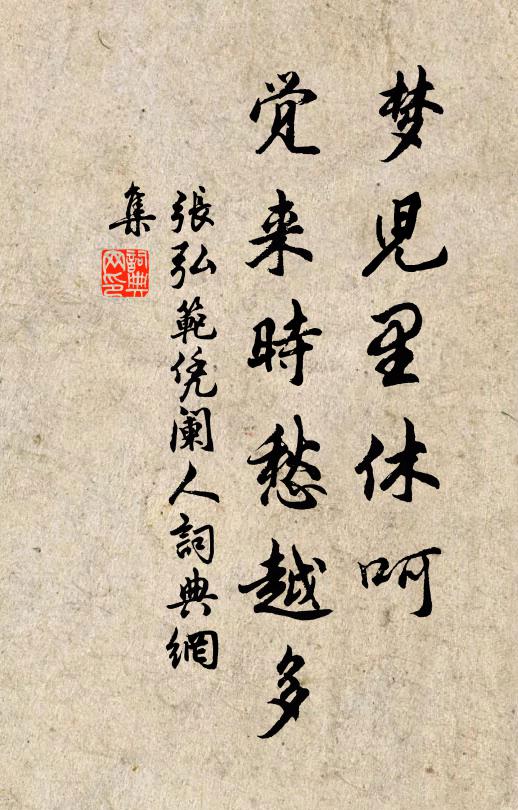 梦児里休呵
覚来時愁越多
張弘範凭闌人詞典網
集
詞典
网印